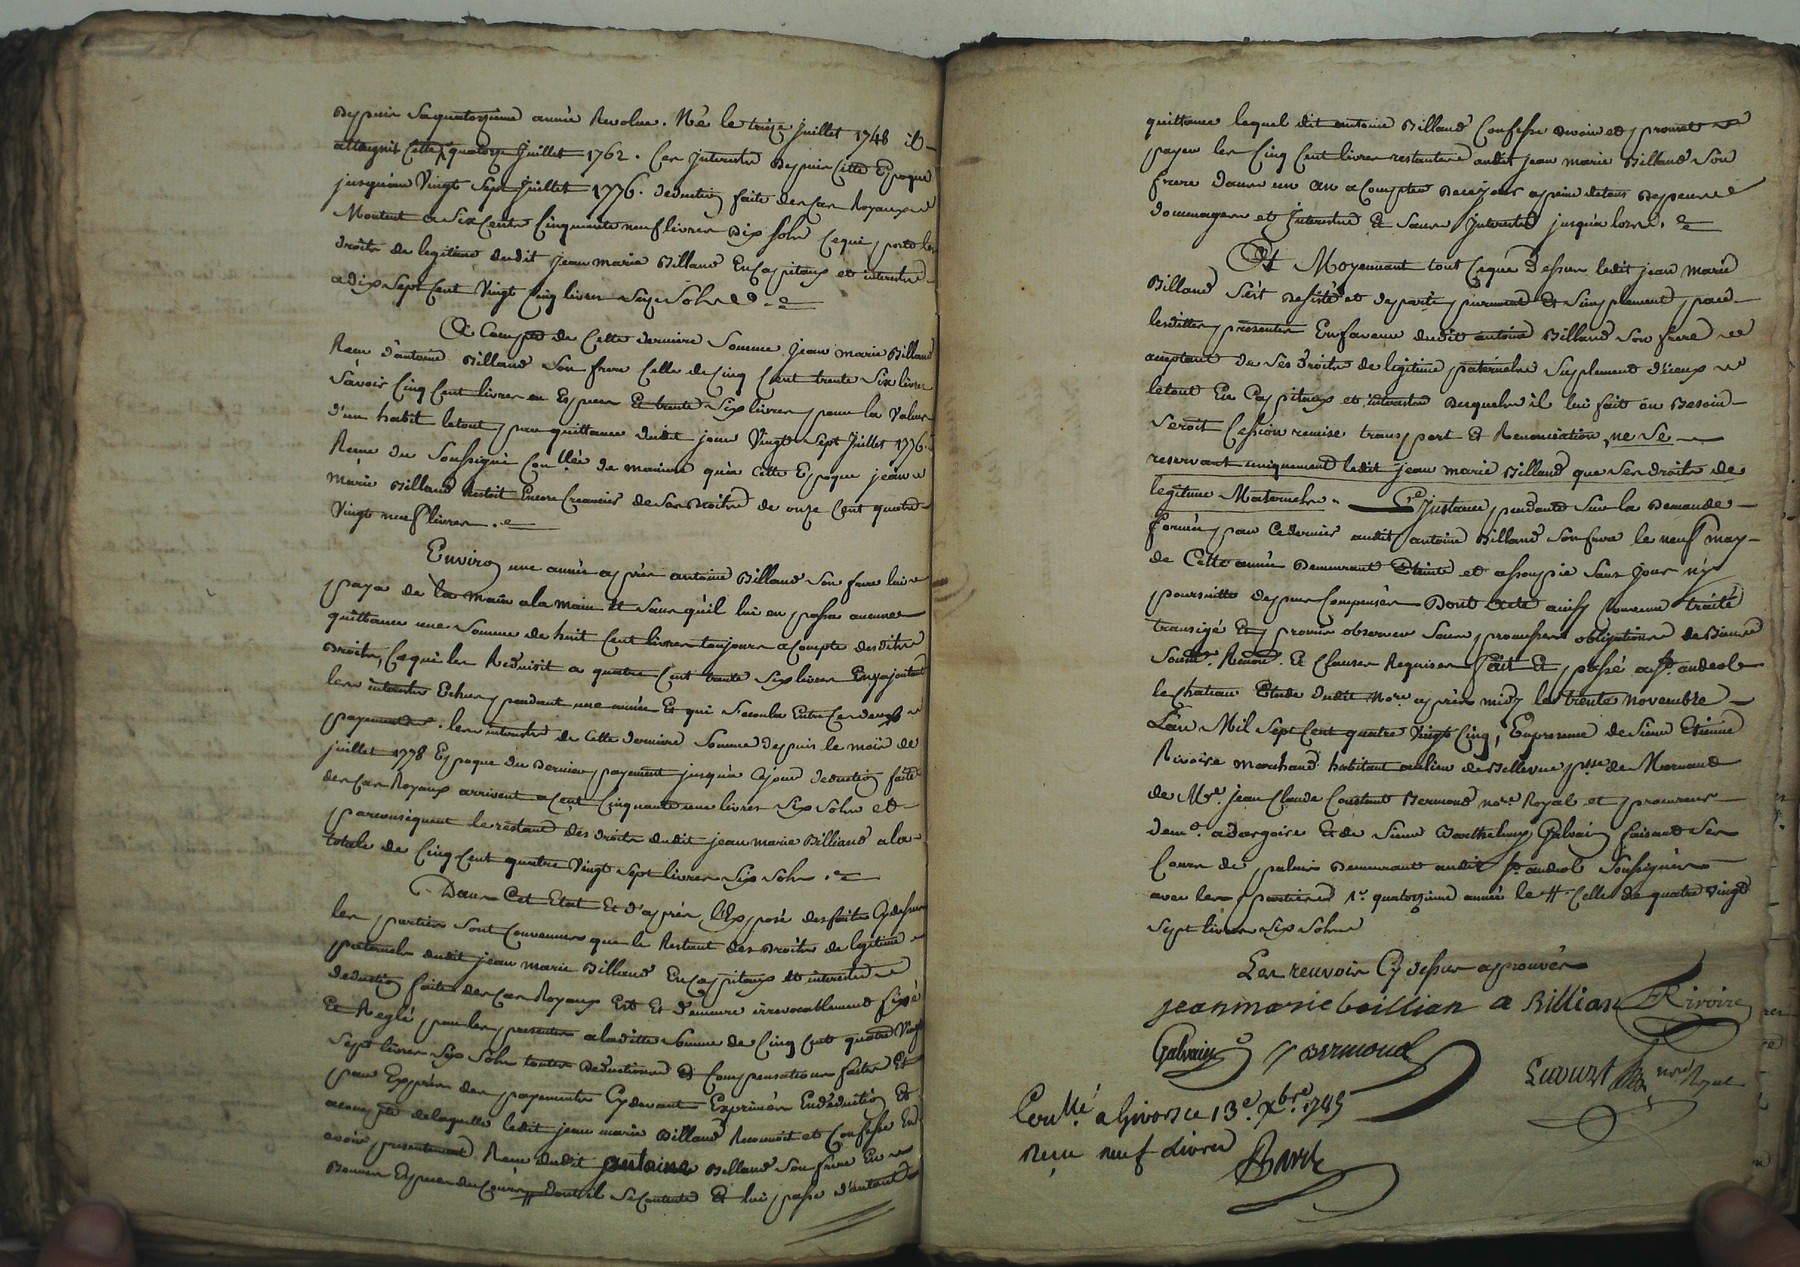 Depuis sa quatorzieme année Revolue. Né le treize juillet 1748 il
attaignit cette quatorze juillet 1762. Ces Interests Depuis Cette Epoque
jusqu'au Vingt Sept juillet 1776. deduction faite des cas Royaux
Montent a Six Cents Cinquante neuf livres Dix sols Ce qui porte les
droits de legitime dudit jean marie Billand En Capitaux et interests
a dix Sept Cent Vingt Cinq livres Seize Sols
A Compte de Cette derniere Somme jean marie Billand
Recu d'antoine Billand Son frere Celle de Cinq Cent trente Six livres
Savoir Cinq Cent livres en Especes Et trente Six livres pour la Valeur
d'un habit le tout par quittance dudit jour Vingt Sept juillet 1776.
Recue du Soussigné Con.llée de maniere qu'a Cette Epoque jean
marie Billand Restoit Encore Creancier de Ses Droits de onze Cent quatre
Vingt neuf livres.
Environ une année après antoine Billand Son frere lui
paya de la main a la main Et Sans qu'il lui en passa aucune
quittance une Somme de huit Cent livres toujours a Compte desdits
Droits, Ce qui les Reduisit a quatre Cent trente Six livres En y ajoutant
les interests Echus pendant une année Et qui S'ecoula Entre Ces deux
payements. les interests de Cette derniere Somme depuis le mois de
juillet 1778 Epoque du Dernier payement jusqu'a Ce jour deduction faite
des cas Royaux arrivent a Cent Cinquante une livres Six Sols et
par consequent le restant des droits dudit jean marie Billiand a la
totale de Cinq Cent quatre Vingt Sept livres Six Sols.
Dans Cet Etat Et d'après l'Exposé des faits Cy dessus
les parties Sont Convenues que le Restant des Droits de legitime
paternels dudit jean marie Billand En Capitaux Et interests
deduction faite des Cas Royaux Est Et Demeure irrevocablement fixé
Et Reglé par les presentes a ladite Somme de Cinq Cent quatre Vingt
Sept livres Six Sols toutes Deductions Et Compensations faites Et
par Exprès des payements Cy devant Exprimés En deduction Et
a compte de laquelle ledit jean marie Billand Reconnoit et Confesse En
avoir presentement Recu dudit antoine Billand Son frere En
Bonnes Especes du Cours dont il Se Contente Et lui passe d'autant
quittance lequel dit antoine Billand Confesse devoir et promet
payer les Cinq Cent livres restantes audit jean marie Billand Son
frere dans un an a Compter De ce jour a peine de tous Depens
dommages et Interests Et Sans Interests jusqu'a lors.
Et Moyennant tout Ce que dessus ledit jean marie
Billand S'est Desisté et departi purement Et Simplement par
lesdittes presentes En faveur dudit antoine Billand Son frere
acceptant de Ses droits de legitime paternels Suplement d'iceux
le tout En Capitaux et interests Desquels il lui fait au Besoin
Seroit Cession remise transport Et Renonciation, ne Se
reservant uniquement ledit jean marie Billand que Ses droits de
legitime Maternels. L'Instance pendante Sur la Demande
formée par Ce dernier audit antoine Billand Son frere le neuf may
de Cette année Demeurant Eteinte et assoupie Sans jour n'y
poursuitte depens Compensés Dont Acte ainsy Convenu traité
transigé Et promis observer Sous promesses obligations de Biens
Soum.s Renon.s Et Clauses Requises fait Et passé a St andeol
le Chateau Etude dudit No.re après midy le trente novembre
L'an Mil Sept Cent quatre Vingt Cinq, En presence de Sieur Etienne
Rivoire marchand habitant au lieu de Bellevue p.sse de Mornand
de M.e jean Claude Constant Bermond no.re Royal et procureur
dem.t a dargoire Et de Sieur Barthelemy Galvain faisant Ses
Cours de palais Demeurant audit St andeol Soussignés
avec les parties 1.° quatorzieme année le Celle de quatre Vingt
Sept livres Six Sols
Les renvois Cy dessus approuvés
jean marie baillian a Billian E Rivoire
Galvain Bermond
no.re Royal
Con.llé a Givors ce 13e. Xbre. 1785
Reçu neuf Livres